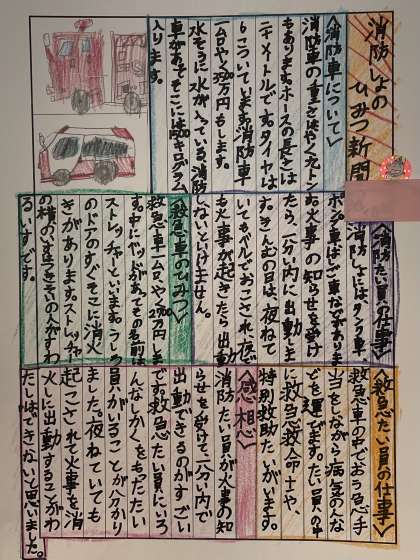 消防しょの
ひみつ新聞
〈消防車について〉
消防車の重さは、やく九トン
もあります。ホースの長さは
二十メートルです。タイヤは
6こついています。消防車
一台やく3500万円もします。
水そうに水が入っている消防
車があってそこには1500キログラム
入ります。
〈消防たい員の仕事〉
消防しょには、タンク車、
ポンプ車など車があります。
火事の知らせを受け
たら、一分い内に出動しま
す。きんむの日は、夜ねて
いてもベルでおこされ夜で
も火事が起きたら出動
しないといけません。
〈救急車のひみつ〉
救急車一台やく2700万円しま
す。中にベッドがあってその名前は
ストレッチャーといいます。うしろ
のドアのすぐそこに消火
きがあります。ストレッチャー
の横の長いすはつきそいの人がすわ
るいすです。
〈救急たい員の仕事〉
救急車の中でおう急手
当をしながら病気の人な
どを運びます。たい員の中
に救急救命士や、
特別救助たいがいます。
〈感想〉
消防たい員が火事の知
らせを受けて一分い内で
出動できるのがすごい
です。救急たい員にいろ
んなしかくをもったたい
員がいることが分かり
ました。夜ねていても
起こされて火事を消
火しに出動することがわ
たしはできないと思いました。